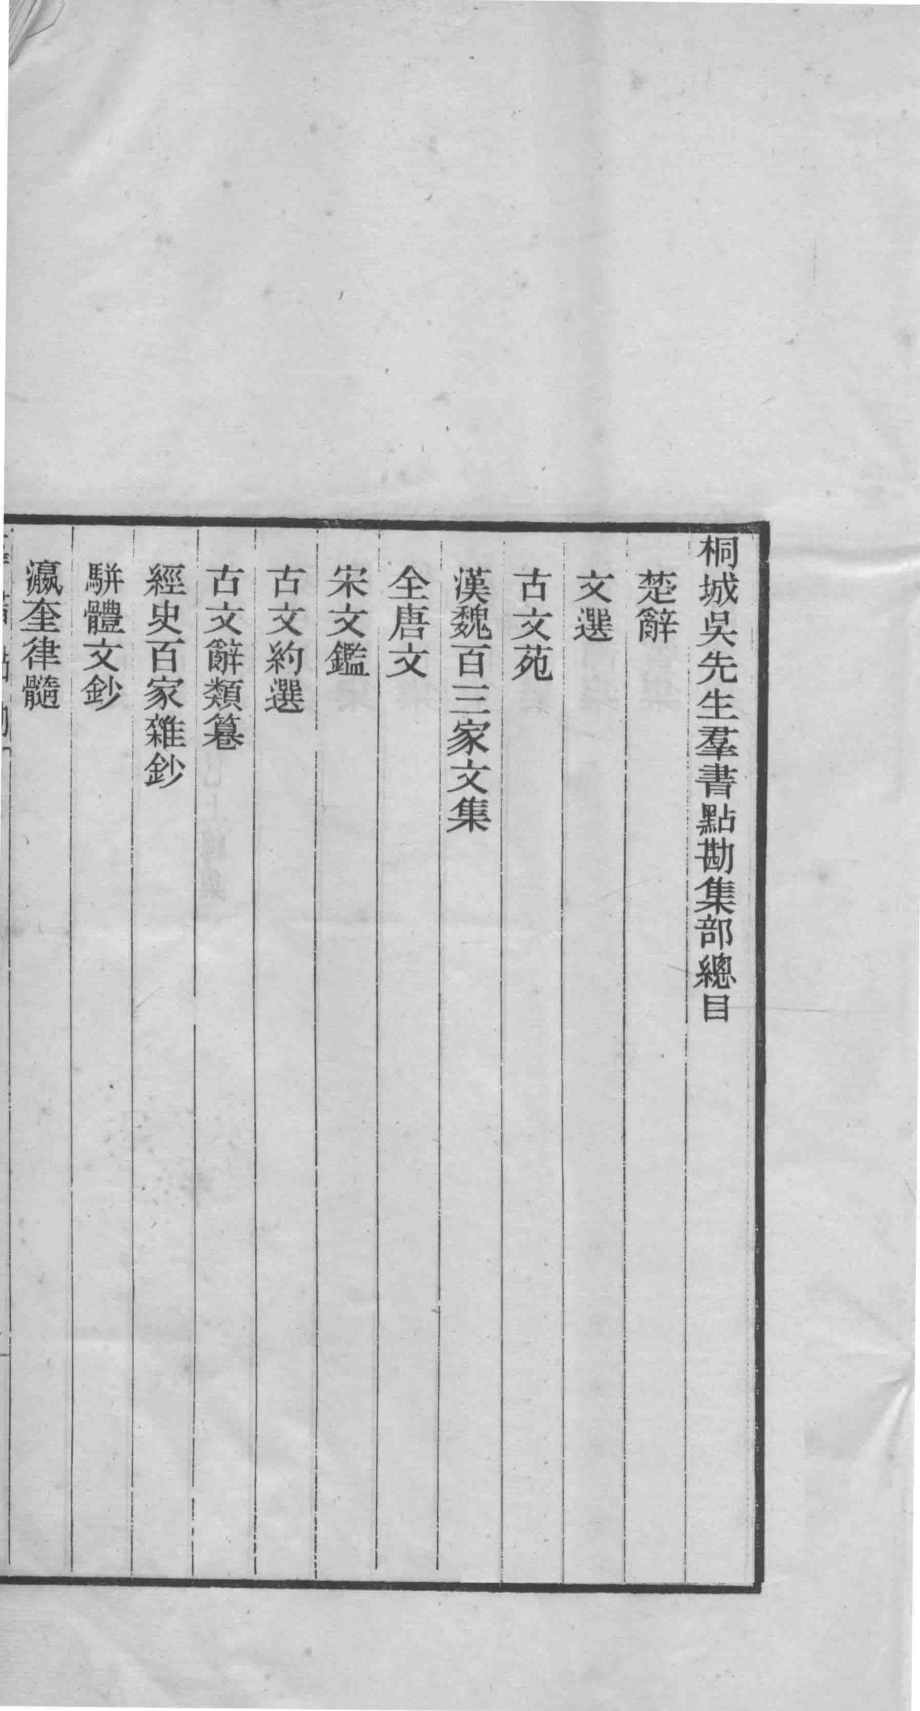 桐城吳先生羣書點勘集部總目
楚辭
文選
古文苑
漢魏百三家文集
全唐文
宋文鑑
古文約選
古文辭類篹
經史百家雜鈔
駢體文鈔
瀛奎律髓